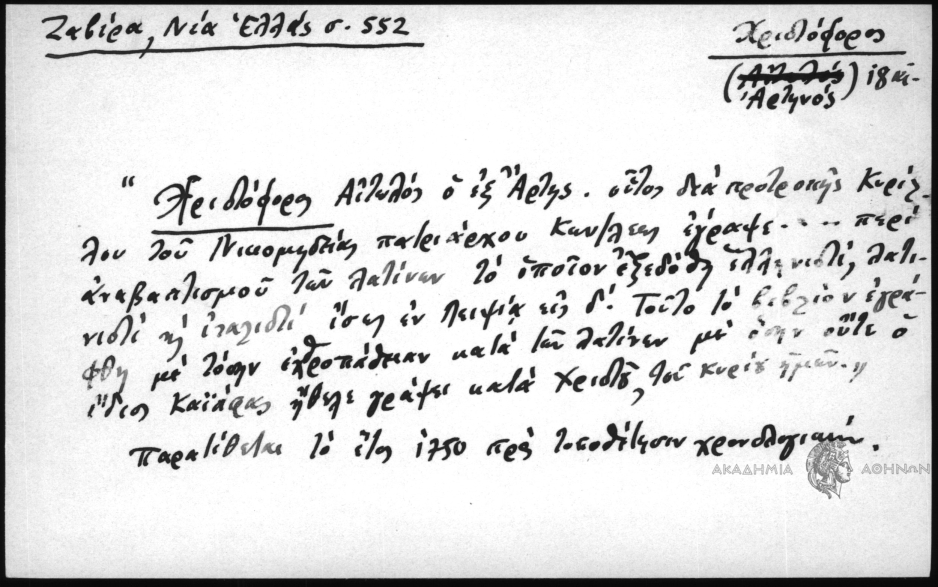 Ζαβίρα, Νέα Ἑλλάς σ. 552
Χριστόφορος
(Αἰτωλός) ιη αἰ.
Ἀρτηνός
" Χριστόφορος Αἰτωλός ὁ ἐξ Ἄρτης. οὗτος διά προτροπῆς Κυρίλ-
λου τοῦ Νικομηδείας πατριάρχου Κων/λεως ἔγραψε.... περί
ἀναβαπτισμοῦ τῶν Λατίνων τό ὁποῖον ἐξεδόθη ἑλληνιστί, λατι-
νιστί καί ἰταλιστί ἴσως ἐν Λειψίᾳ εἰς δ! Τοῦτο τό βιβλίον ἐγρά-
φθη μέ τόσην ἐχθροπάθειαν κατά τῶν Λατίνων μέ ὅσην οὔτε ὁ
ἴδιος Καϊάφας ἤθελε γράψει κατά Χριστοῦ, τοῦ κυρίου ἡμῶν. "
Παρατίθεται τό ἔτος 1750 πρός τοποθέτησιν χρονολογικήν.
ΑΚΑΔΗΜΙΑ ΑΘΗΝΩΝ